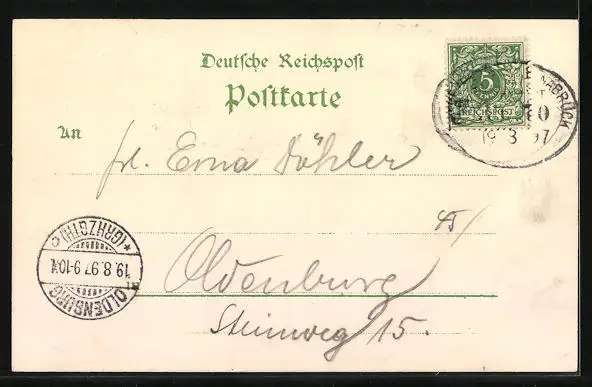 Deutsche Reichspost
Postkarte
5
REICHSPOST
BRÜCK
19 8 97
An
frl. Erna Döhler
Oldenburg
Steinweg 15.
OLDENBURG
19.8.97.9-10
*(GRHZGTH)